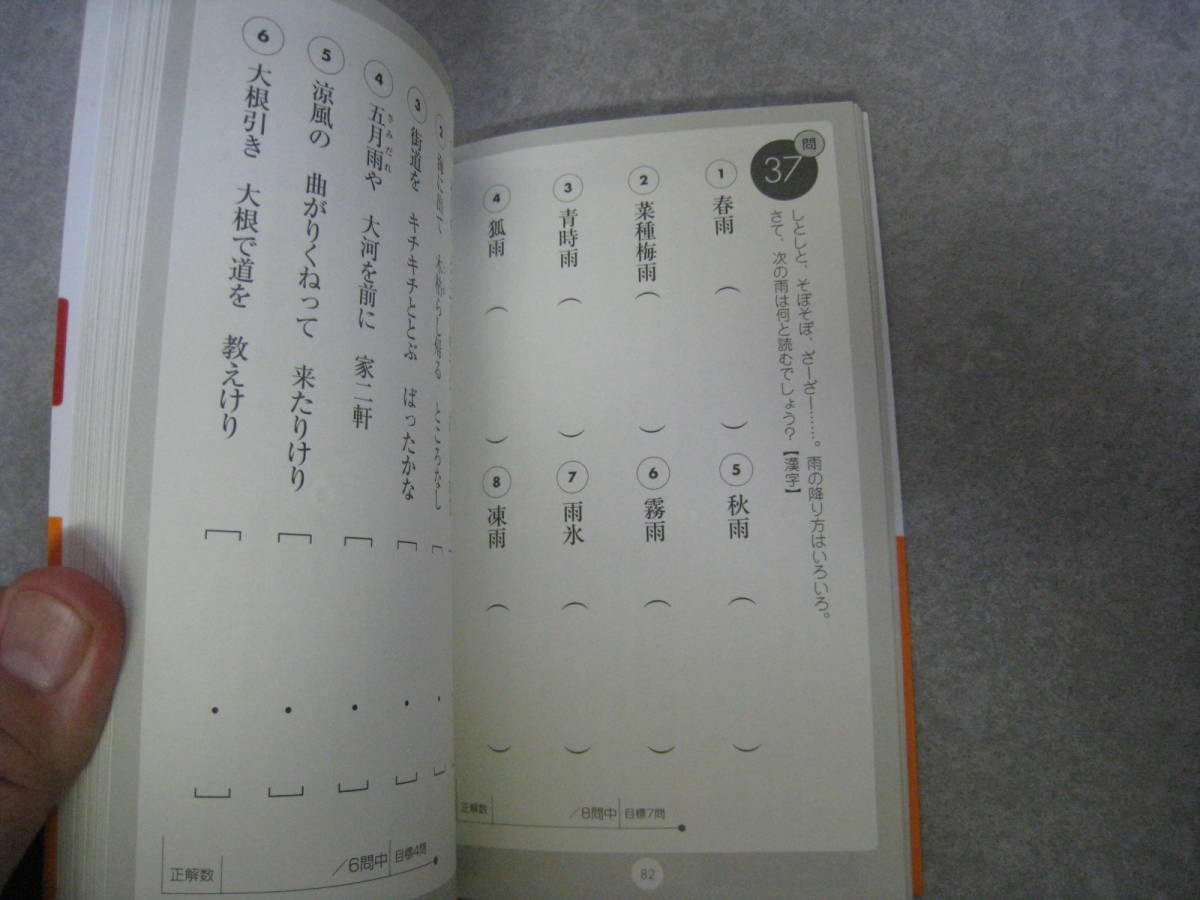 問
37
しとしと、そぼそぼ、ざーざー……。雨の降り方はいろいろ。
さて、次の雨は何と読むでしょう?【漢字】
1 春雨 ( )
2 菜種梅雨 ( )
3 青時雨 ( )
4 狐雨 ( )
5 秋雨 ( )
6 霧雨 ( )
7 雨氷 ( )
8 凍雨 ( )
正解数 /8問中 目標7問
82
2 海に出て 木枯らし帰る ところなし [ ・ ]
3 街道を キチキチととぶ ばったかな [ ・ ]
さみだれ
4 五月雨や 大河を前に 家二軒 [ ・ ]
5 涼風の 曲がりくねって 来たりけり [ ・ ]
6 大根引き 大根で道を 教えけり [ ・ ]
正解数 /6問中 目標4問